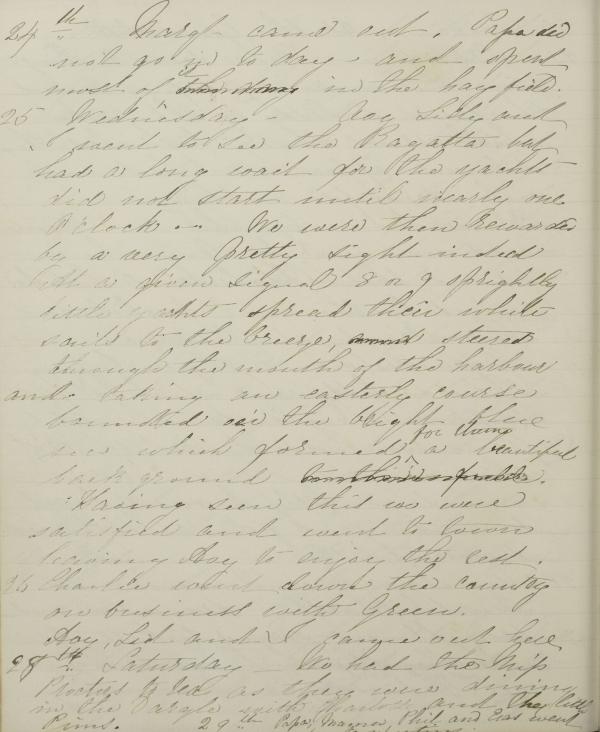 24th Margt came out. Papa did
not go in to day - and spent
most of in the hay field.
25 Wednesday - Loy Lilly and
I went to see the Ragatta but
had a long wait for the yachts
did not start until nearly one
O'clock - We were then rewarded
by a very pretty sight indeed
At a given signal 8 or 9 sprightly
little yachts spread their white
sails to the breeze, steered
through the mouth of the harbour
and taking an easterly course
bounded o'er the bright blue
sea which formed for them a beautiful
back ground
Having seen this we were
satisfied and went to town
leaving Loy to enjoy the rest.
26 Charlie went down the country
on business with Green.
Loy, Lid and I came out here
28th Saturday - We had the Miss
to tea as they were dining
in the Dargle with and the little
Pims. 29th Papa, Mama, Phil. and went